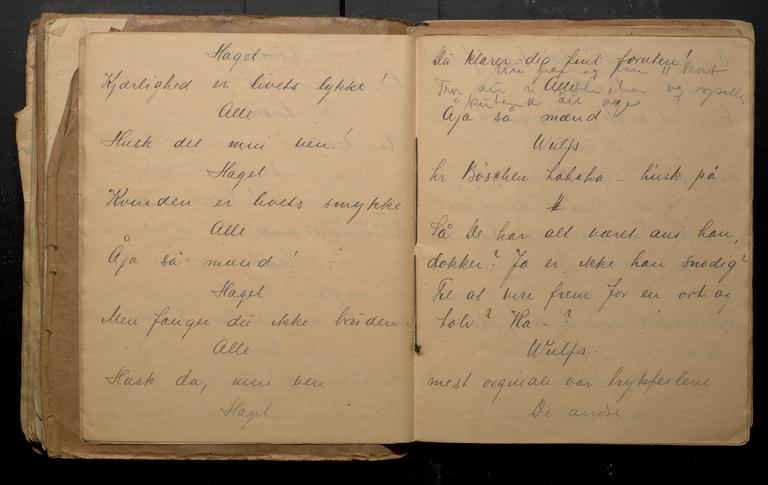 Hagel
Kjærlighed er livets lykke!
Alle
Husk det min ven!
Hagel
Kvinden er livets smykke
Alle
Åja så mænd!
Hagel
Men fanger du ikke bruden -
Alle
Husk da, min ven
Hagel
Du klarer dig fint foruten!
Alle
Åja så mænd
Wulfs.
hr Böschen hahaha - husk på
#
Så De har alt været avi han,
dokker? Ja er ikke han snodig?
Til at vise frem for en ort og
tolv? Ha - ?
Wulfs.
mest orginale var trykfeilene
De andre